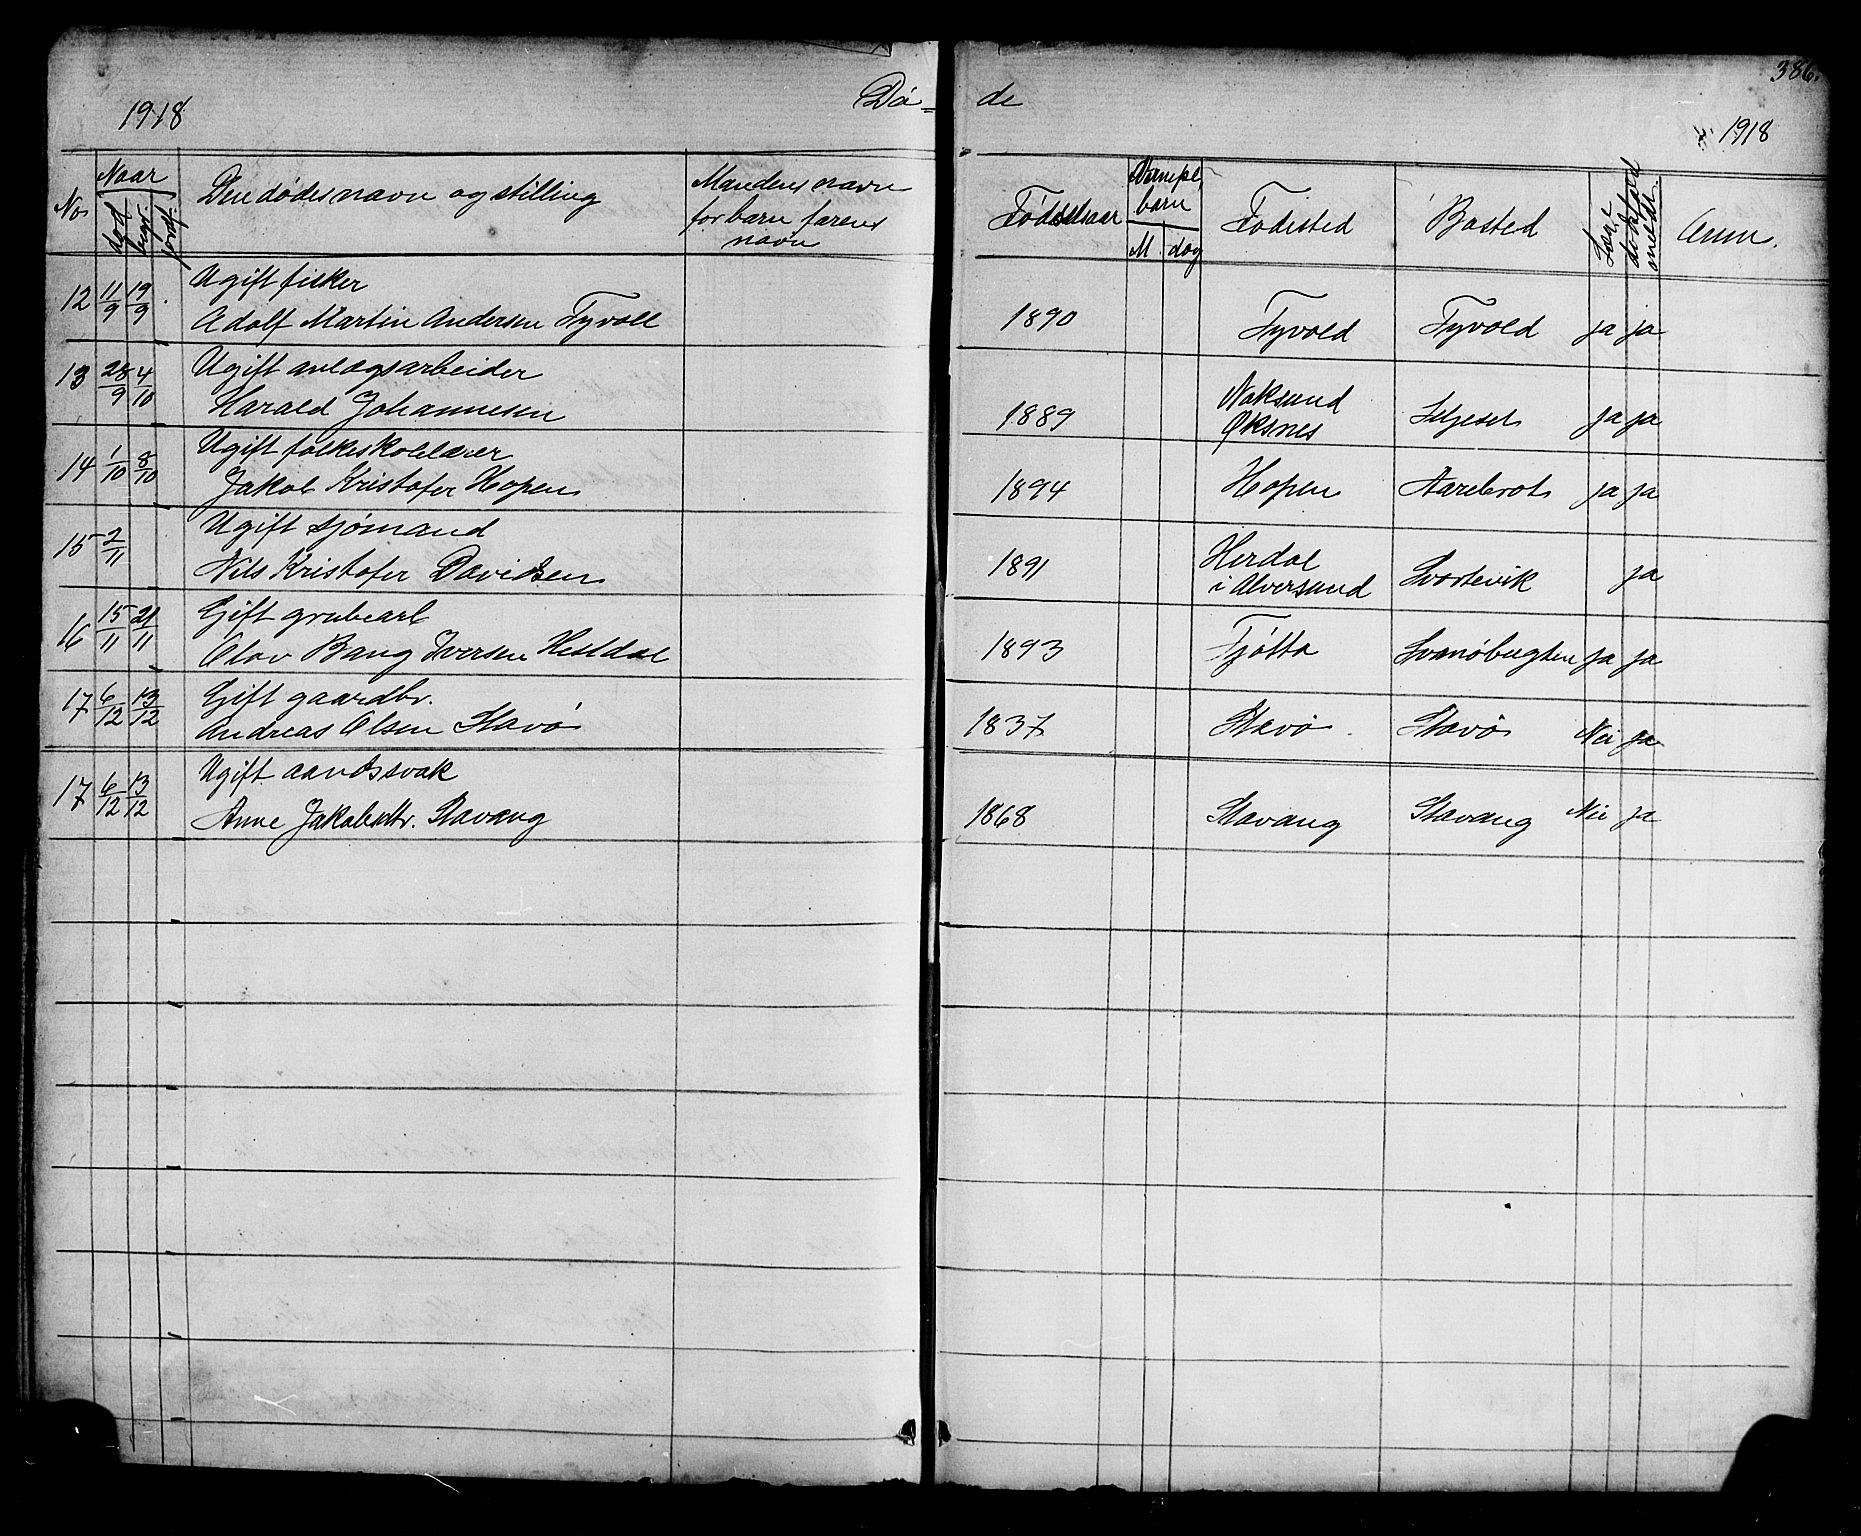 1918 Dö- de 386.
1918
No Naar Den dødes navn og stilling Mandens navn Fødselsaar barn Fødested Bosted Anm.
død begr. jordf. for barn farens M. dag
navn
Ugift fisker
12 11/9 19/9 Adolf Martin Andersen Tyvoll 1890 Tyvold Tyvold ja ja
13 28/9 4/10 Ugift anlægsarbeider Noksund
Harald Johannesen 1889 Øksnes Seljeset ja ja
Ugift folkeskolelærer
14 1/10 8/10 Jakob Kristofer Hopen 1894 Hopen Aarebrot ja ja
15 2/11 Ugift sjømand Herdal
Nils Kristofer Davidsen 1891 i Alversund Svortevik ja
16 15/11 21/11 Gift grubearb
Olav Bang Iversen Hestdal 1893 Tjøtta Svanøbugten ja ja
17 6/12 13/12 Gift gaardbr.
Andreas Olsen Stavø 1837 Stavø Stavø Nei ja
Ugift aandssvak
17 6/12 13/12 Anne Jakobsdtr. Stavang 1868 Stavang Stavang Nei ja